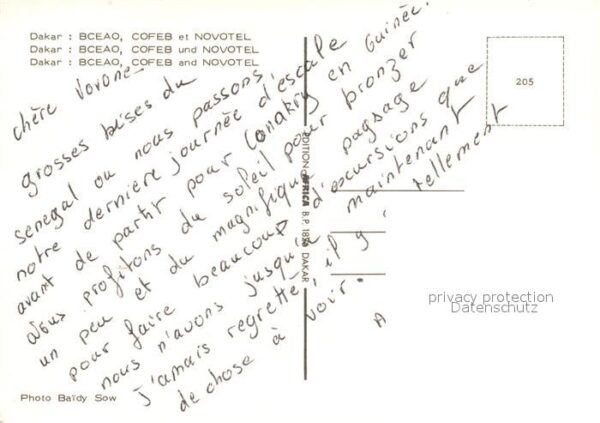 Dakar : BCEAO, COFEB et NOVOTEL
Dakar : BCEAO, COFEB und NOVOTEL
Dakar : BCEAO, COFEB and NOVOTEL
chère Vovone
grosses bises du
Sénégal ou nous passons
notre dernière journée d'escale
avant de partir pour Conakry en Guinée.
Nous profitons du soleil pour bronzer
un peu et du magnifique paysage
pour faire beaucoup d'excursions que
nous n'avons jusqu'à maintenant
jamais regretté, il y a tellement
de chose à voir.
A
EDITION AFRICA B.P. 1856 DAKAR
205
privacy protection
Datenschutz
Photo Baïdy Sow